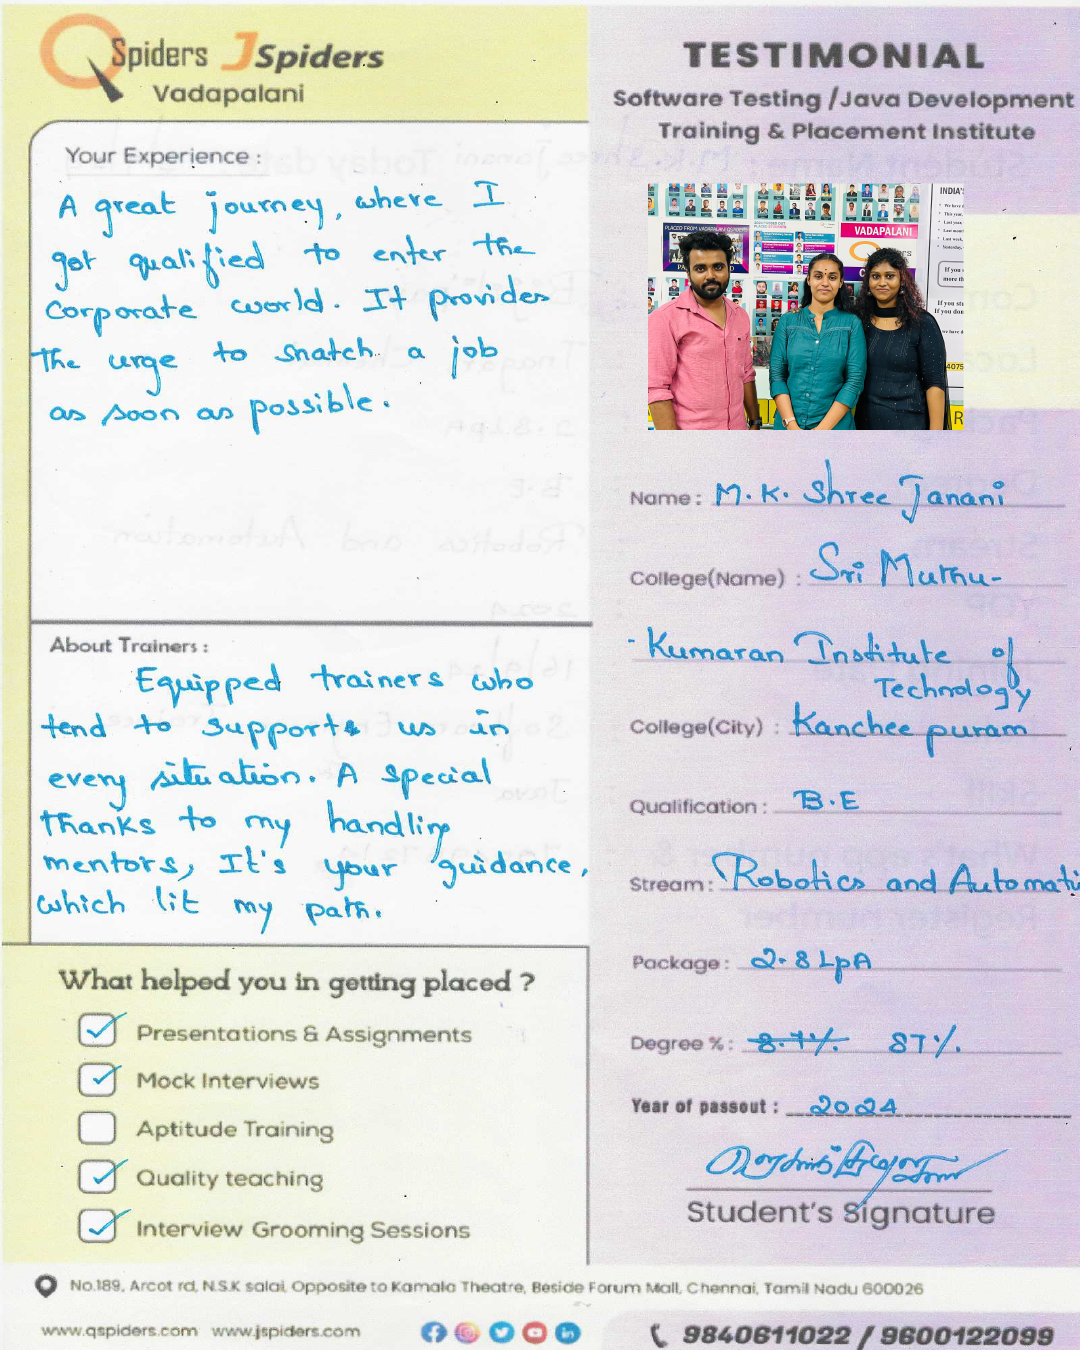 QSpiders JSpiders
Vadapalani
TESTIMONIAL
Software Testing /Java Development
Training & Placement Institute
Your Experience :
A great journey, where I
got qualified to enter the
Corporate world. It provides
the urge to snatch a job
as soon as possible.
VADAPALANI
INDIA'
Name : M.K. Shree Janani
College(Name) : Sri Muthu-
-Kumaran Institute of
Technology
College(City) : Kancheepuram
Qualification : B.E
Stream : Robotics and Automati
Package : 2.8 LpA
Degree % : 8.7%. 87%.
Year of passout : 2024
Student's Signature
About Trainers :
Equipped trainers who
tend to supports us in
every situation. A special
thanks to my handling
mentors, It's your guidance,
which lit my path.
What helped you in getting placed ?
Presentations & Assignments
Mock Interviews
Aptitude Training
Quality teaching
Interview Grooming Sessions
No.189, Arcot rd, N.S.K salai, Opposite to Kamala Theatre, Beside Forum Mall, Chennai, Tamil Nadu 600026
www.qspiders.com www.jspiders.com
9840611022 / 9600122099